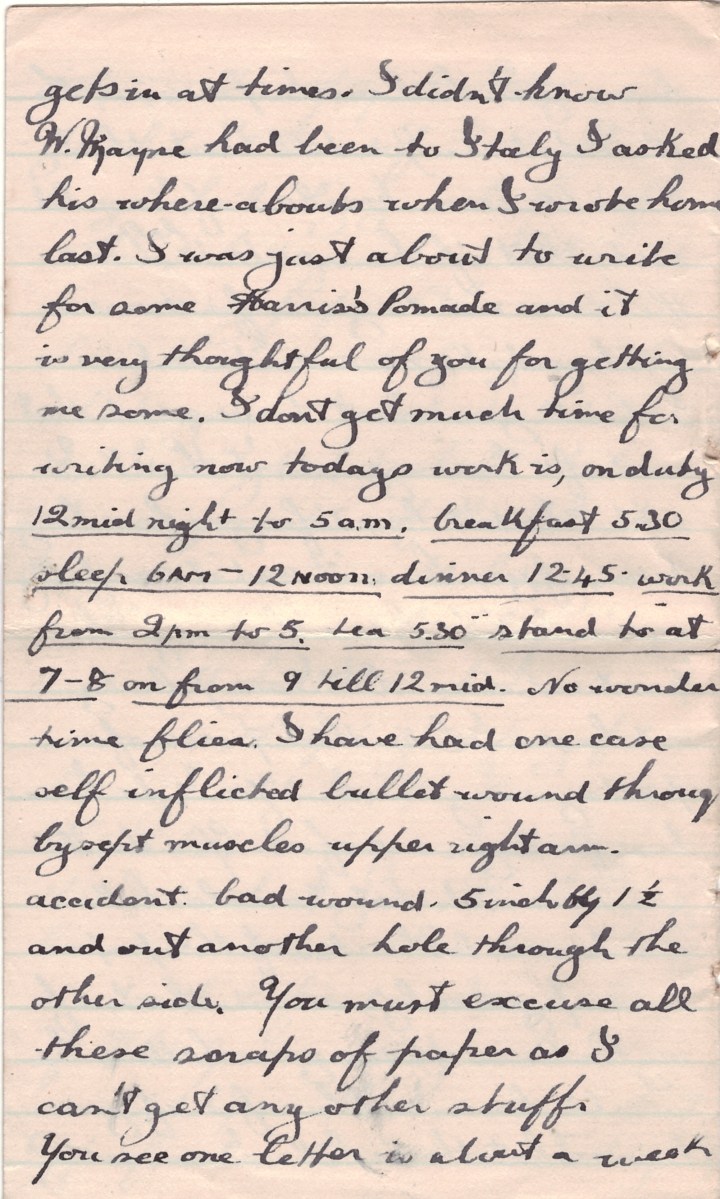 gets in at times. I didn't know
W. Mayne had been to Italy I asked
his where-abouts when I wrote home
last. I was just about to write
for some Harris's Pomade and it
is very thoughtful of you for getting
me some. I dont get much time for
writing now todays work is, on duty
12 mid night to 5 a.m. breakfast 5.30
sleep 6AM - 12 NOON, dinner 12-45. work
from 2pm to 5. tea 5.30 stand to at
7-8 on from 9 till 12 mid. No wonder
time flies. I have had one case
self inflicted bullet wound throug
bysept muscles upper right arm.
accident. bad wound. 5 inch by 1½
and out another hole through the
other side. You must excuse all
these scraps of paper as I
can't get any other stuff.
You see one letter is about a week